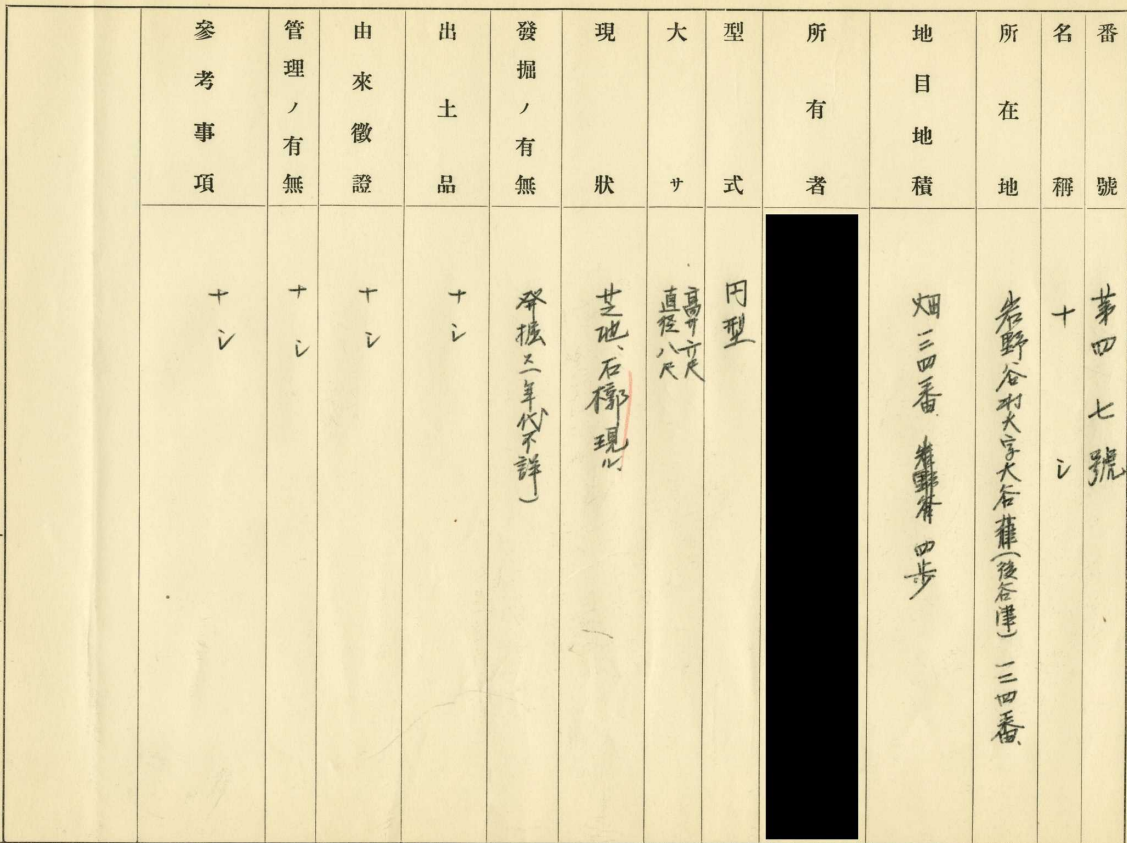 番號
第四七號
名稱
ナシ
所在地
岩野谷村大字大谷(後谷津)一二四番
地目地積
畑一二四番 四歩
所有者
型式
円型
大サ
高サ六尺
直径八尺
現狀
芝地、石槨現ル、
發掘ノ有無
発掘ス(年代不詳)
出土品
ナシ
由來徵證
ナシ
管理ノ有無
ナシ
參考事項
ナシ